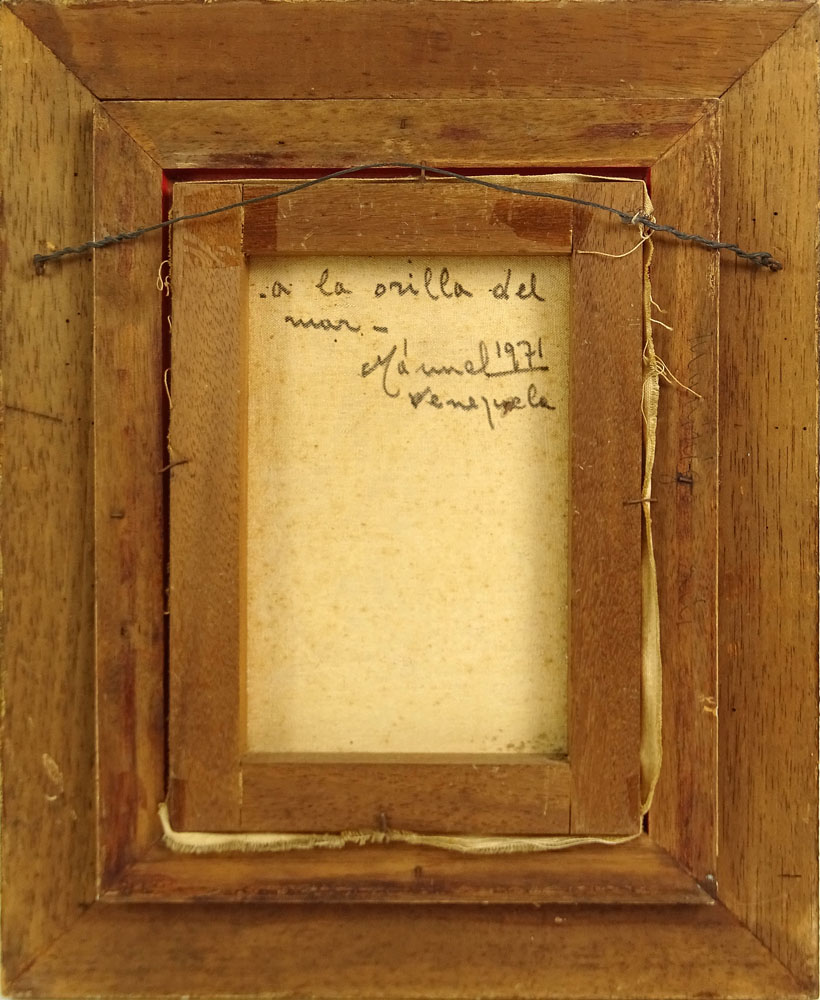 .a la orilla del
mar.-
1971
Venezuela